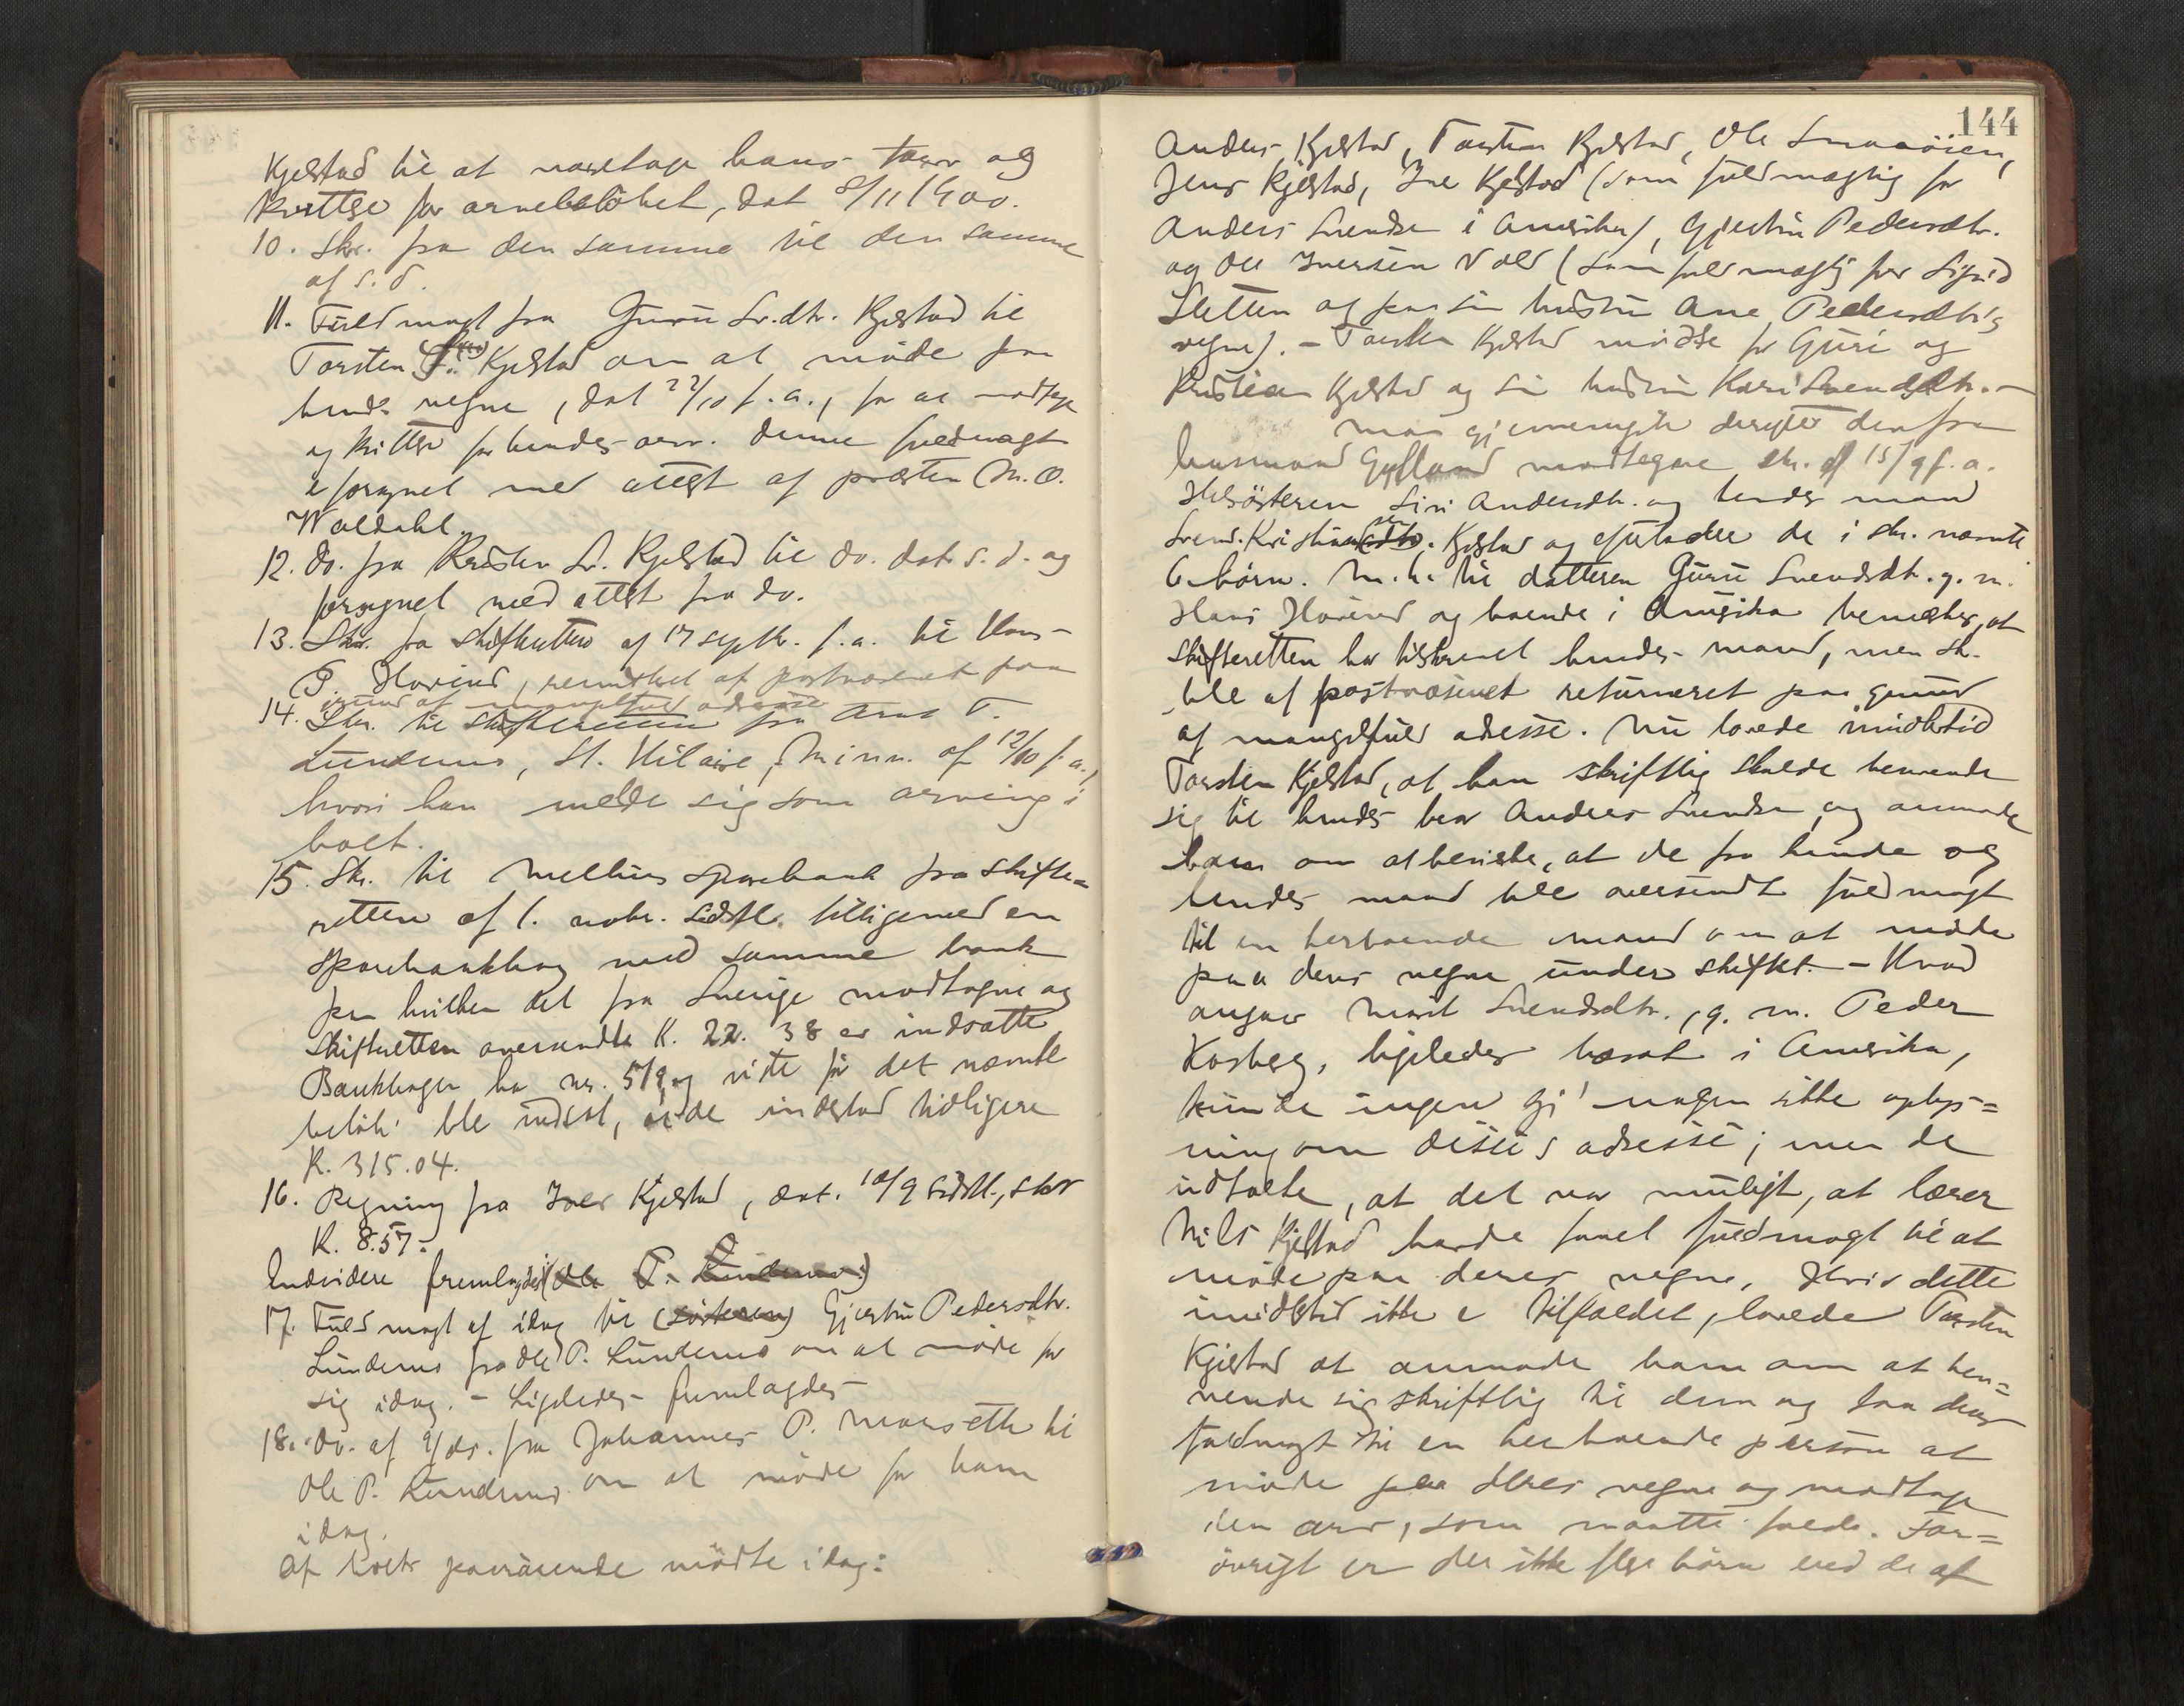 Kjelstad til at varetage hans tarv og
kvittere for arvebeløbet, dat. 8/11 1900.
10. Skr. fra den samme til den samme
af s. d.
11. Fuldmagt fra Guru Sv.dtr. Kjelstad til
Torsten Kjelstad om at møde paa
hendes vegne, dat 22/10 f. a., for at modtage
og kvittere for hendes arv. Denne fuldmagt
er forsynet med attest af presten M. O.
Waldahl.
12. Do. fra Kristen Sv. Kjelstad til do. dat. s. d. og
forsynet med attest fra do.
13. Skr. fra skifteretten af 17 septbr. f. a. til Hans
P. Hovind, remitteret af postvæsenet paa
grund af mangelfuld adresse
14. Skr. til skifteretten fra Arnt T.
Lundemo, St. Hilaire, Minn. af 12/10 f. a.,
hvori han melder sig som arving i
boet.
15. Skr. til Melhus sparebank fra skifte=
retten af 1. novbr. sidstl. tilligemed en
sparebankbog med samme bank
paa hvilken det fra Sverige modtagne og
skifteretten oversendte K. 22. 38 er indsatte
Bankbogen har nr. 519 og viste før det nævnte
beløb ble indsat, at de indestod tidligere
K. 315.04.
16. Regning fra Iver Kjelstad, dat. 10/9 sidstl., stor
K. 8.57.
Endvidere fremlagdes (Ole P. Lundemo:)
17. Fuldmagt af idag til (søsteren) Gjertru Pedersdtr.
Lundemo fra Ole P. Lundemo om at møde for
sig idag. - Ligeledes fremlagdes
18. Do. af 9/ds. fra Johannes P. Morseth til
Ole P. Lundemo om at møde for ham
idag.
Af boets paarørende mødte idag:
144
Anders Kjelstad, Torsten Kjelstad, Ole Smaaøien,
Jens Kjelstad, Iver Kjelstad (som fuldmægtig for
Anders Svendsen i Amerika), Gjertru Pedersdtr.
og Ole Iversen Vold (som fuldmægtig for Sigrid
Sletten og paa sin hustru Ane Pedersdtr's
vegne). - Torsten Kjelstad mødte for Guri og
Kristian Kjelstad og sin hustru Kari Svendsdtr. -
Man gjennemgik derefter den fra
husmand Gylland modtagne skr. af 15/9 f. a.
Helsøsteren Siri Andersdtr. og hendes mand
Svend Kristiansen Kjelstad og efterlode de i skr. nævnte
6 børn. M. h. til datteren Guru Svendsdtr. g. m.
Hans Hovind og boende i Amerika bemerkes, at
skifteretten har tilskrevet hendes mand, men sk.
ble af postvæsenet returneret paa grund
af mangelfuld adresse. Nu lovede imidlertid
Torsten Kjelstad, at han skriftlig skulde henvende
sig til hendes bror Anders Svendsen og anmode
ham om at bevirke, at de fra hende og
hendes mand ble oversendt fuldmagt
til en herboende mand om at møde
paa deres vegne under skiftet. - Hvad
angaar Marit Svendsdtr., g. m. Peder
Kosberg, ligeledes bosat i Amerika,
kunde ingen gi' nogen sikker oplys=
ning om disses adresse; men de
udtalte, at det var muligt, at lærer
Nils Kjelstad havde faaet fuldmagt til at
møde paa deres vegne. Hvis dette
imidlertid ikke er tilfældet, lovede Torsten
Kjelstad at anmode ham om at hen=
vende sig skriftlig til dem og faa deres
fuldmagt til en herboende person at
møde paa deres vegne og modtage
den arv, som maatte falde. For=
øvrigt er der ikke flere børn end de af